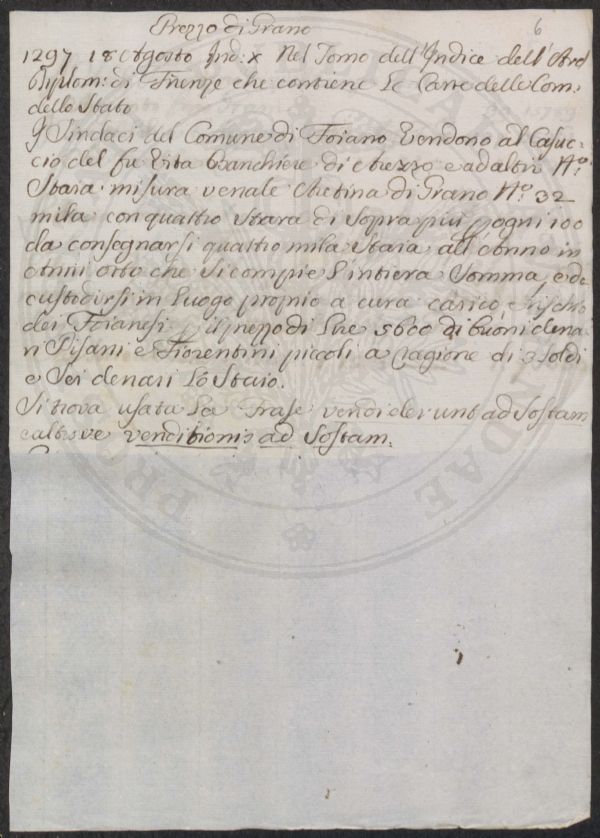 Prezzo di Grano
6
1297 18 Agosto Ind: X Nel Tomo dell'Indice dell'Ard
Diplom: di Firenze che contiene le Carte delle Com:
dello Stato
Sindaci del Comune di Foiano Vendono al Casuc=
cio del fu Vita Banchiere di Arezzo e ad altri No.
Staia misura venale Aretina di Grano No. 32
mila con quattro Stara di Sopra più p ogni 100
da consegnarsi quattro mila Staia all'anno in
anni otto che si compie l'intiera Somma, e da
custodirsi in luogo proprio a cura carico, e rischio
dei Foianesi p il prezzo di Lire 5600 di buoni dena
ri Pisani e Fiorentini piccoli a ragione di 3 Soldi
e Sei denari lo Staio.
Si trova usata la Frase vendiderunt ad Sostam
e altrove venditionis ad Sostam.